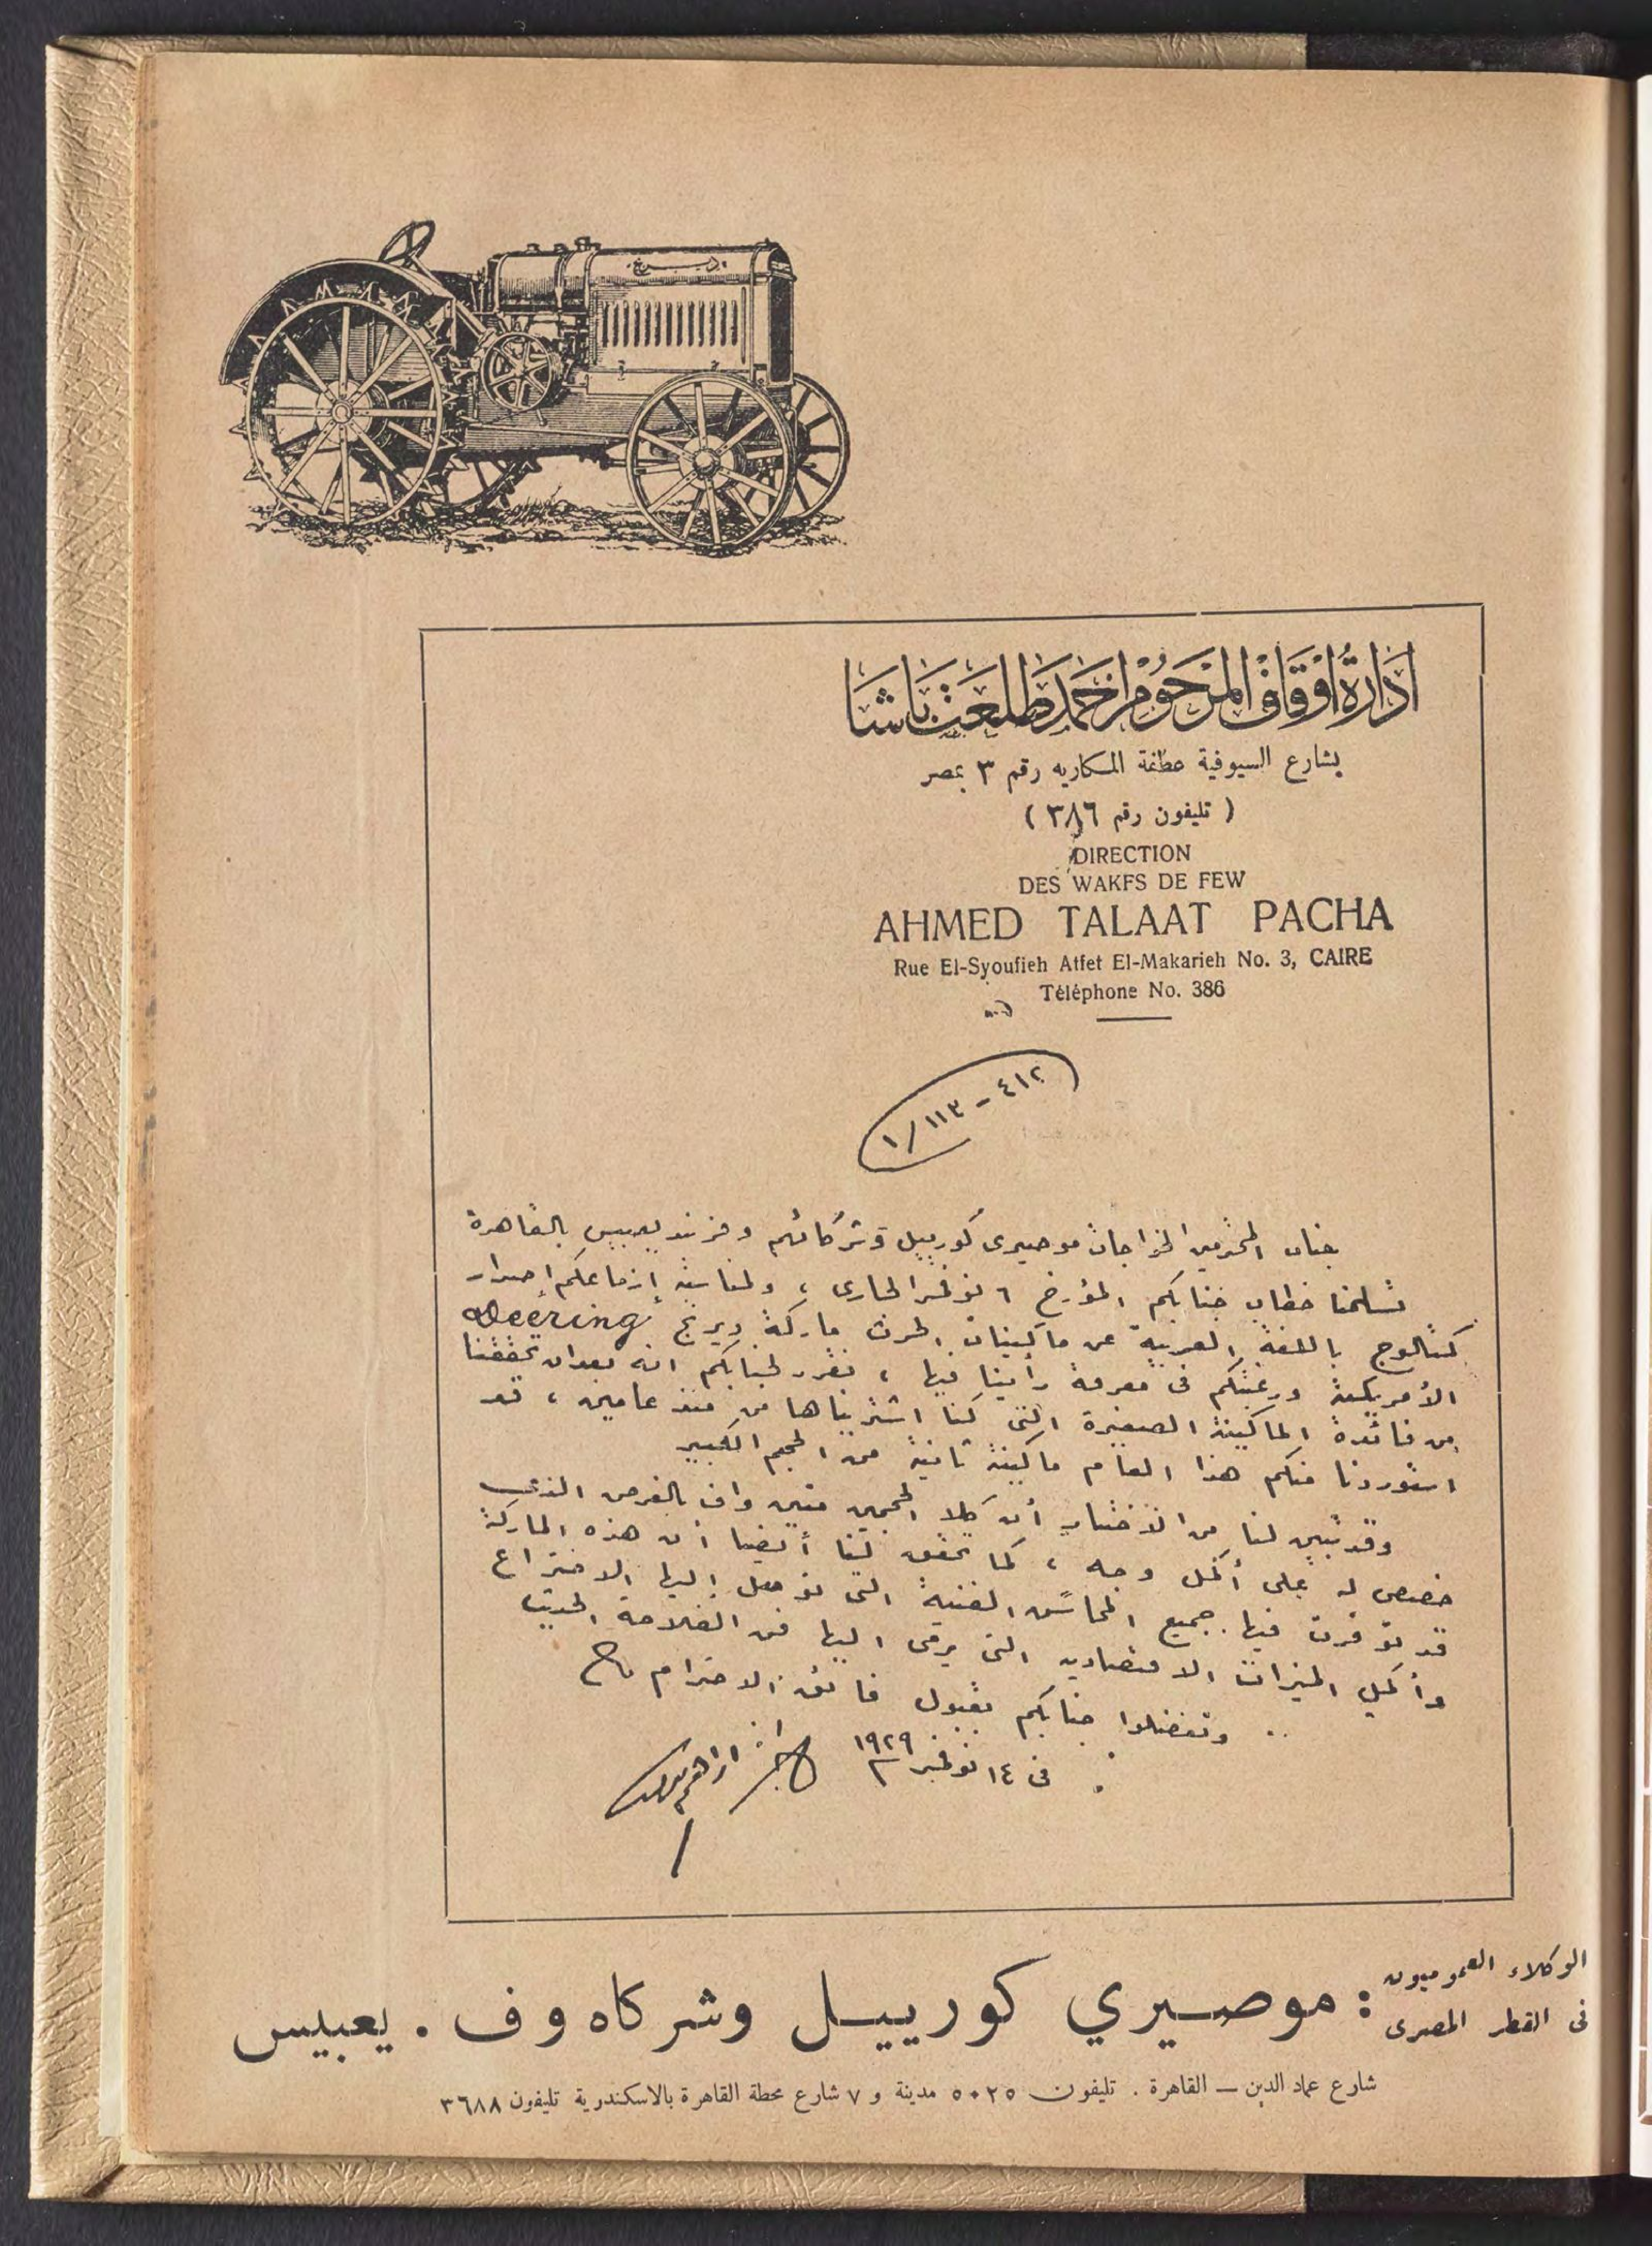 ديرنج
ادارة اوقاف المرحوم احمد طلعت باشا
بشارع السيوفية عطفة المكاريه رقم ٣ بمصر
( تليفون رقم ٣٨٦ )
DIRECTION
DES WAKFS DE FEW
AHMED TALAAT PACHA
Rue El-Syoufieh Atfet El-Makarieh No. 3, CAIRE
Téléphone No. 386
٤١٢ - ١١٣ / ١
جناب المحترمين الخواجات موصيرى كورييل وشركائهم وفرند يعبيس بالقاهرة
تسلمنا خطاب جنابكم المؤرخ ٦ نوفمبر الجارى ، ولمناسبة إزماعكم إصدار
كتالوج باللغة العربية عن ماكينات الحرث ماركة ديرنج Deering
الأمريكية ورغبتكم فى معرفة رأينا فيها ، نقرر لجنابكم انه بعد ان تحققنا
من فائدة الماكينة الصغيرة التى كنا اشتريناها من منذ عامين ، قد
استوردنا منكم هذا العام ماكينة ثانية من الحجم الكبير
وقد تبين لنا من الاختبار أن كلا الحجمين متين واف بالغرض الذى
خصص له على أكمل وجه ، كما تحقق لنا أيضا أن هذه الماركة
قد توفرت فيها جميع المحاسن الفنية التى توصل إليها الاختراع
وأكمل الميزات الاقتصاديه التى يرمى اليها فن الفلاحة الحديث
وتفضلوا جنابكم بقبول فائق الاحترام
فى ١٤ نوفمبر ١٩٢٩
الوكلاء العموميون
فى القطر المصرى
: موصيري كورييل وشركاه و ف . يعبيس
شارع عماد الدين — القاهرة . تليفون ٥٠٢٥ مدينة و ٧ شارع محطة القاهرة بالاسكندرية تليفون ٣٦٨٨